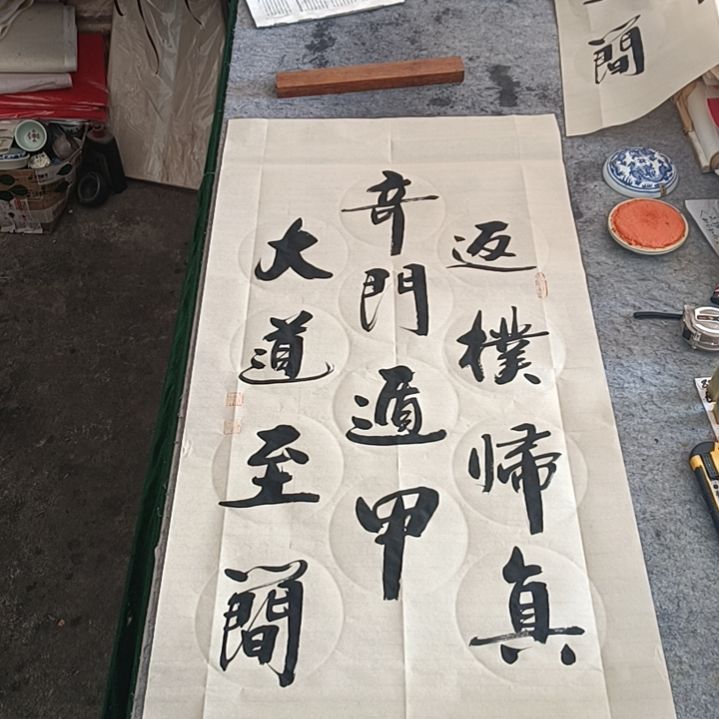 返樸歸真
奇門遁甲
大道至簡
簡